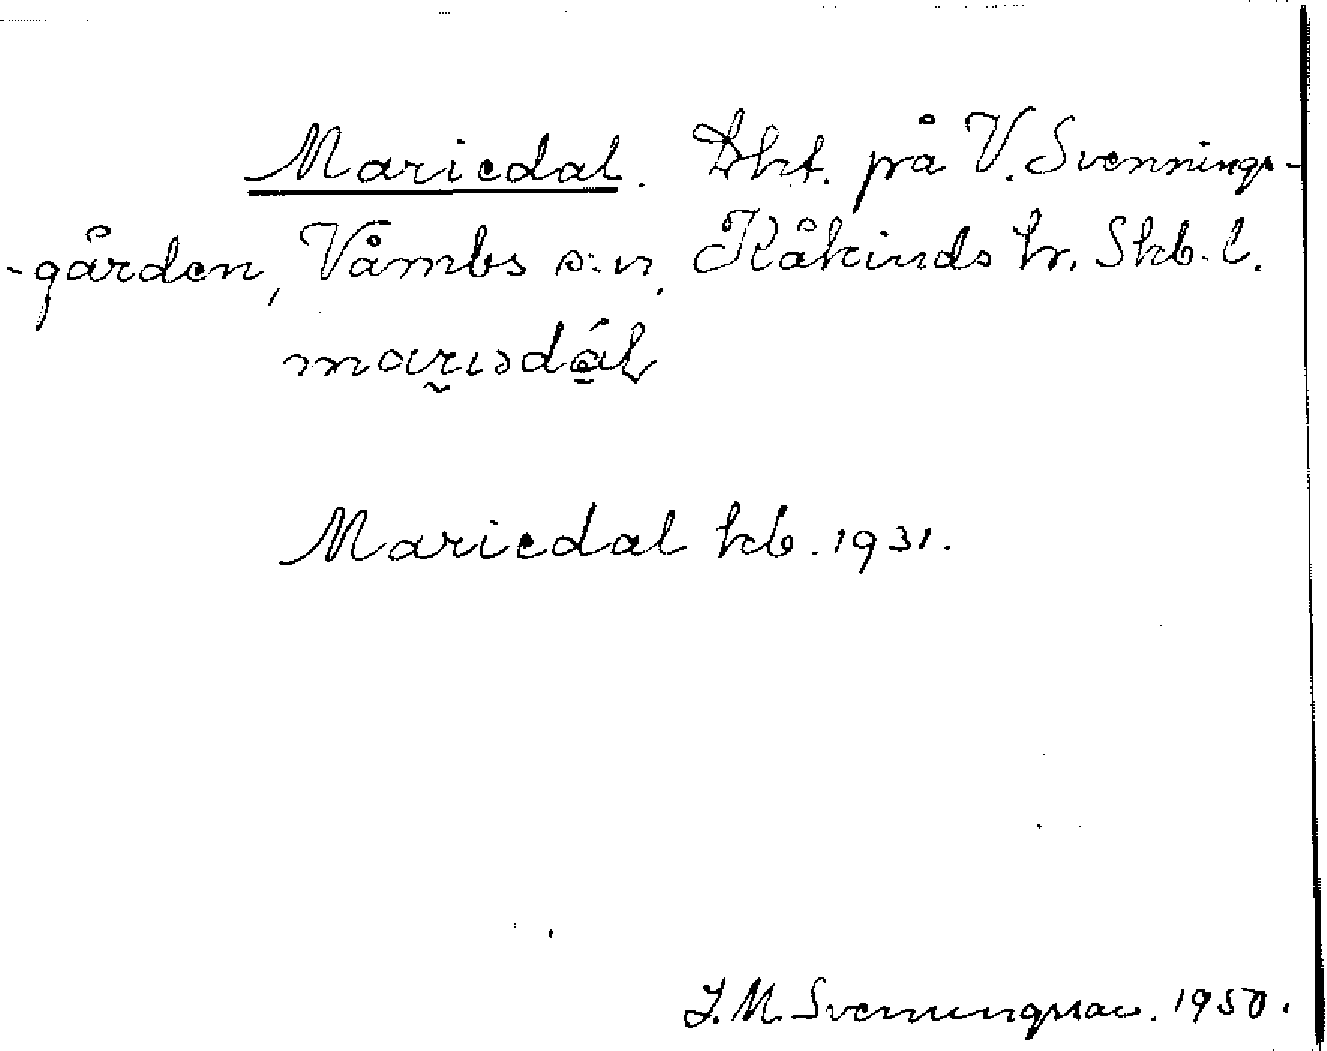 Mariedal. Lht. på V. Svennings-
-gården, Våmbs s:n, Kåkinds hr. Skb. l.
marısdál
Mariedal kb. 1931.
J. M. Svenningsson. 1950.